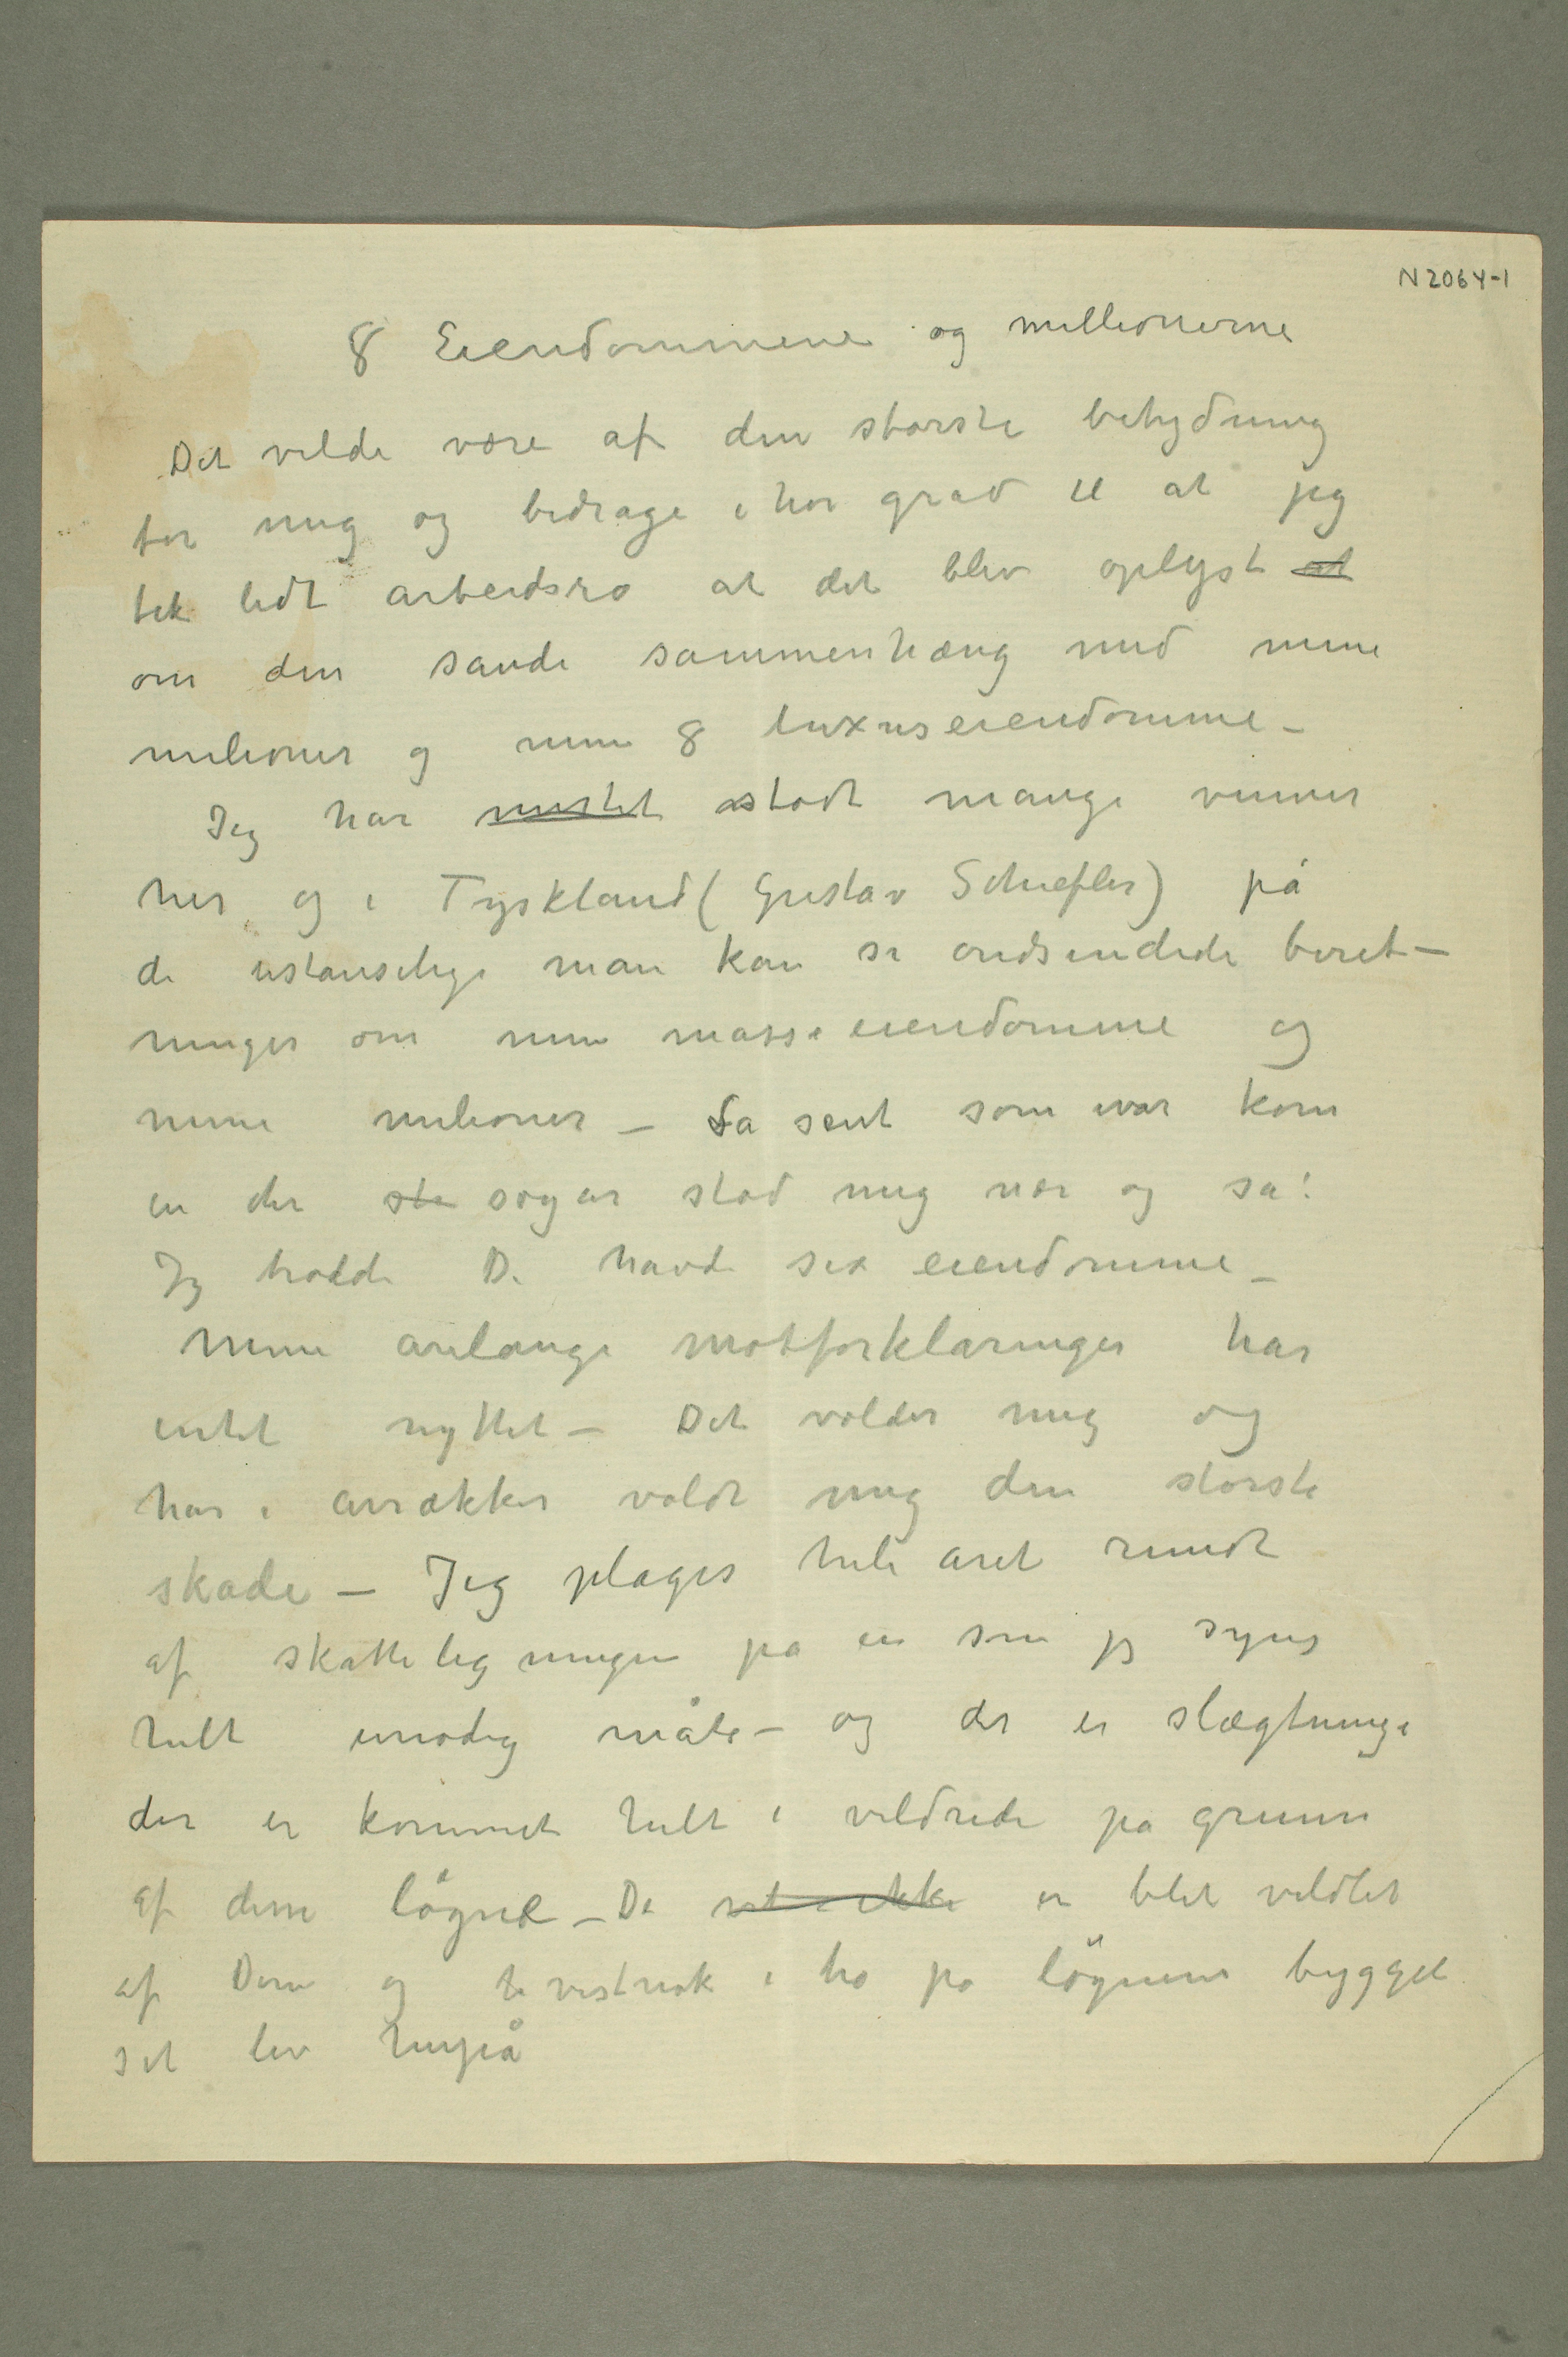 N 2064-1
8 Eiendommene og millionerne
Det vilde være af den største betydning
for mig og bidrage i høi grad til at jeg
fik lidt arbeidsro at det blev oplyst at
om den sande sammenhæng med mine
milioner og mine 8 luxuseiendomme –
Jeg har mistet stødt mange venner
her og i Tyskland (Gustav Schiefler) på
de ustanselige man kan si ondsindede beret–
ninger om mine masse eiendomme og
mine milioner – Sa sent som ivår kom
en der sto sogar stod mig nær og sa:
Jeg trodde De havde sex eiendomme –
Mine arelange motforklaringer har
intet nyttet – Det volder mig og
har i arrækker voldt mig den største
skade – Jeg plages hele aret rundt
af skatteligningen pa en som jeg synes
helt unødig måte – og der er slægtninge
der er kommet helt i vildrede pa grunn
af disse løgne – De vet ikke er blet vildlet
af Dem og vistnok i tro pa løgnene bygget
sit liv herpå